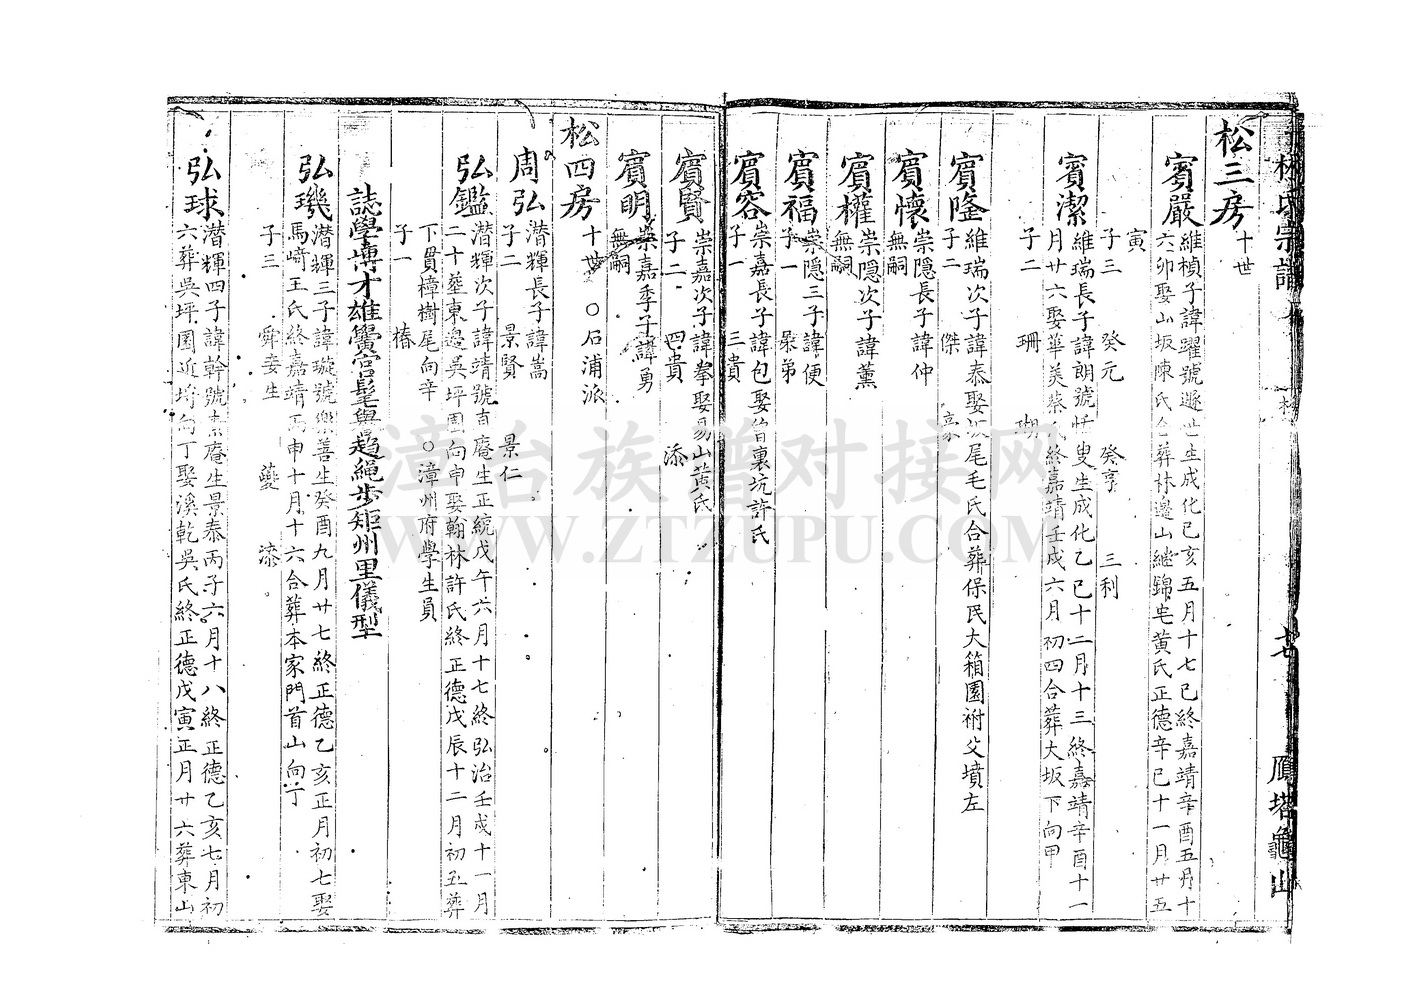 林氏宗譜
七
鴈塔龜山
松三房
十世
賓嚴
維楨子諱躍號遯世生成化己亥五月十七巳終嘉靖辛酉五月十
六卯娶山坂陳氏合葬林邊山継錦宅黃氏正德辛巳十一月廿五
寅
子三 癸元 癸亨 三利
賓潔
維瑞長子諱朗號 叟生成化乙巳十二月十三終嘉靖辛酉十一
月廿六娶華美蔡氏終嘉靖壬戌六月初四合葬大坂下向甲
子二 珊 瑚
賓隆
維瑞次子諱泰娶坂尾毛氏合葬保民大箱園祔父墳左
子二 傑 豪
賓懷
崇隱長子諱仲
無嗣
賓權
崇隱次子諱薰
無嗣
賓福
崇隱三子諱便
子一 晜弟
賓容
崇嘉長子諱包娶曾裏坑許氏
子一 三貴
賓賢
崇嘉次子諱拳娶易山黃氏
子二 四貴 添
賓明
崇嘉季子諱勇
無嗣
松四房
十世 ○石浦派
周弘
潛輝長子諱嵩
子二 景賢 景仁
弘鑑
潛輝次子諱靖號直庵生正統戊午六月十七終弘治壬戌十一月
二十塟東邊吳坪園向申娶翰林許氏終正德戊辰十二月初五葬
下貫樟樹尾向辛 ○漳州府學生員
子一 椿
誌學博才雄黌宮髦與趨繩步矩州里儀型
弘璣
潛輝三子諱璇號樂善生癸酉九月廿七終正德乙亥正月初七娶
馬﨑王氏終嘉靖丙申十月十六合葬本家門首山向丁
子三 舜妾生 夔 漆
弘球
潛輝四子諱幹號素庵生景泰丙子六月十八終正德乙亥七月初
六葬吳坪園近埓向丁娶溪乾吳氏終正德戊寅正月廿六葬東山
漳台族譜对接网
WWW.ZTZUPU.COM